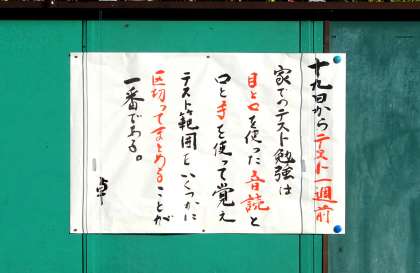 十九日からテスト一週前
家でのテスト勉強は
目と口を使った音読と
口と手を使って覚え
テスト範囲をいくつかに
区切ってまとめることが
一番である。
卓